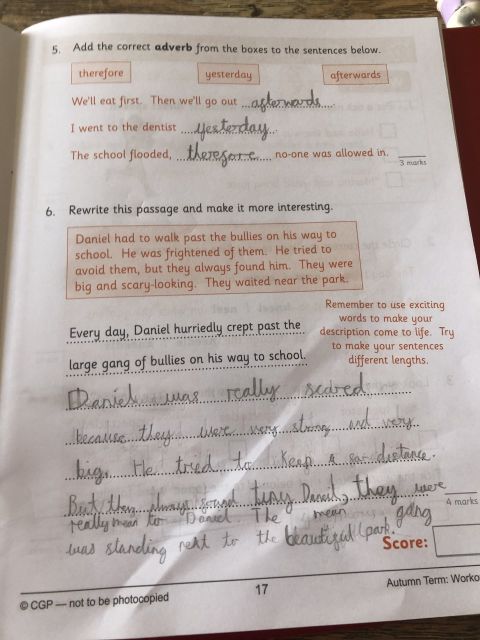 5. Add the correct adverb from the boxes to the sentences below.
therefore yesterday afterwards
We'll eat first. Then we'll go out afterwards.
I went to the dentist yesterday.
The school flooded, therefore no-one was allowed in.
3 marks
6. Rewrite this passage and make it more interesting.
Daniel had to walk past the bullies on his way to
school. He was frightened of them. He tried to
avoid them, but they always found him. They were
big and scary-looking. They waited near the park.
Remember to use exciting
words to make your
description come to life. Try
to make your sentences
different lengths.
Every day, Daniel hurriedly crept past the
large gang of bullies on his way to school.
Daniel was really scared
because they were very strong and very
big. He tried to keep a far distance.
But they always found tiny Daniel, they were
4 marks
really mean to Daniel. The mean gang
was standing next to the beautiful park.
Score:
17
Autumn Term: Worko
© CGP — not to be photocopied